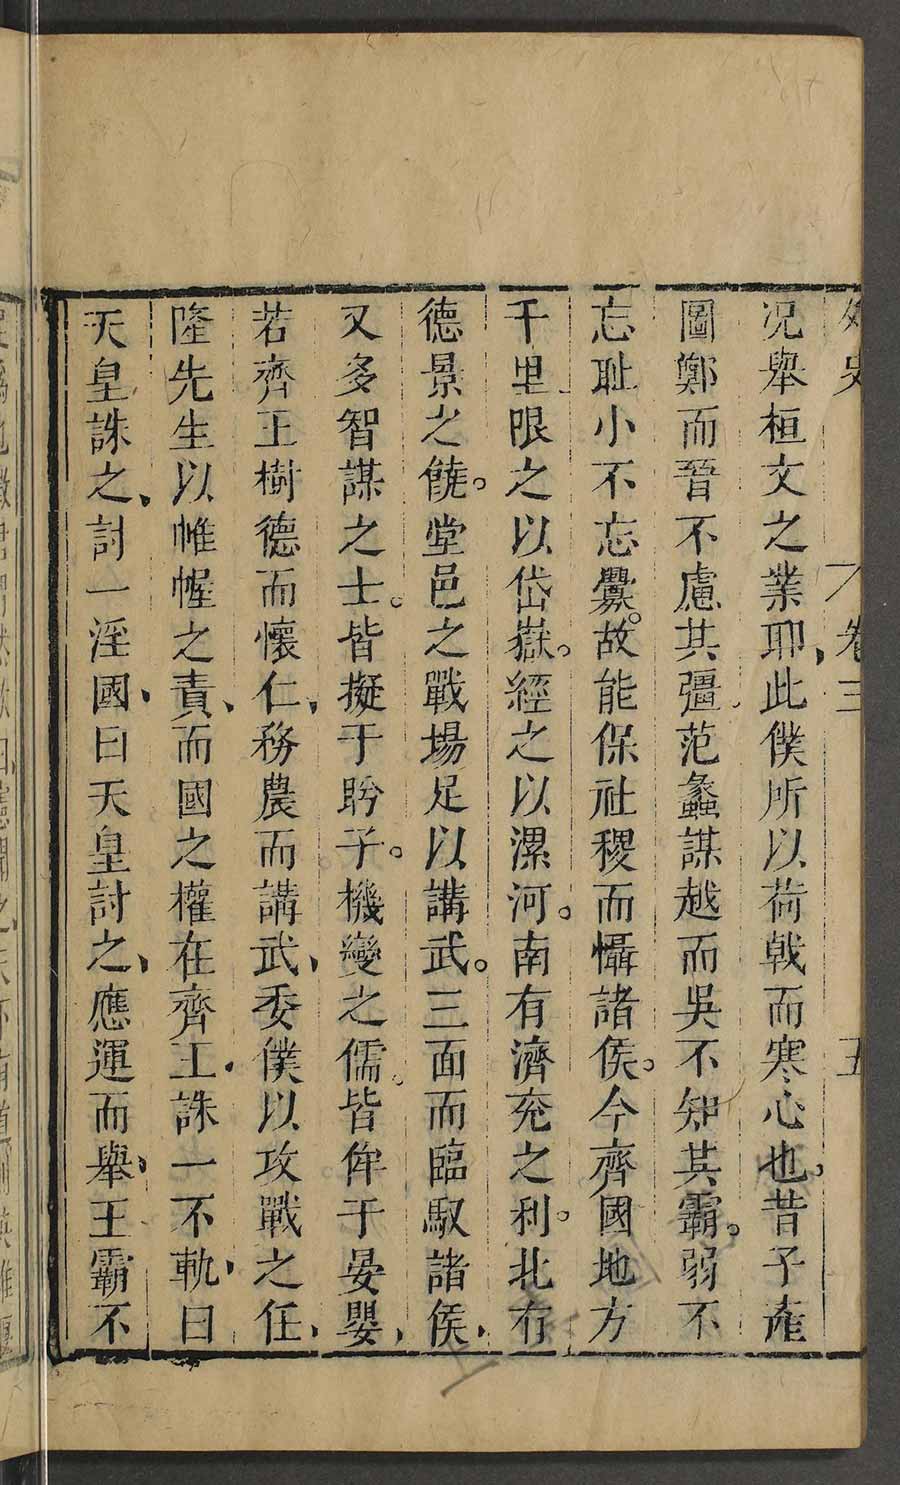 卷三
五
況舉桓文之業耶、此僕所以荷戟而寒心也。昔子產
圖鄭而晉不慮其彊。范蠡謀越而吳不知其霸。弱不
忘耻小不忘釁。故能保社稷而懾諸侯。今齊國地方
千里限之以岱嶽。經之以漯河。南有濟兖之利。北有
德景之饒。堂邑之戰場足以講武。三面而臨馭諸侯、
又多智謀之士。皆擬于盻子。機變之儒。皆侔于晏嬰、
若齊王樹德而懷仁、務農而講武、委僕以攻戰之任、
隆先生以帷幄之責、而國之權在齊王、誅一不軌、曰
天皇誅之、討一淫國、曰天皇討之、應運而舉、王霸不